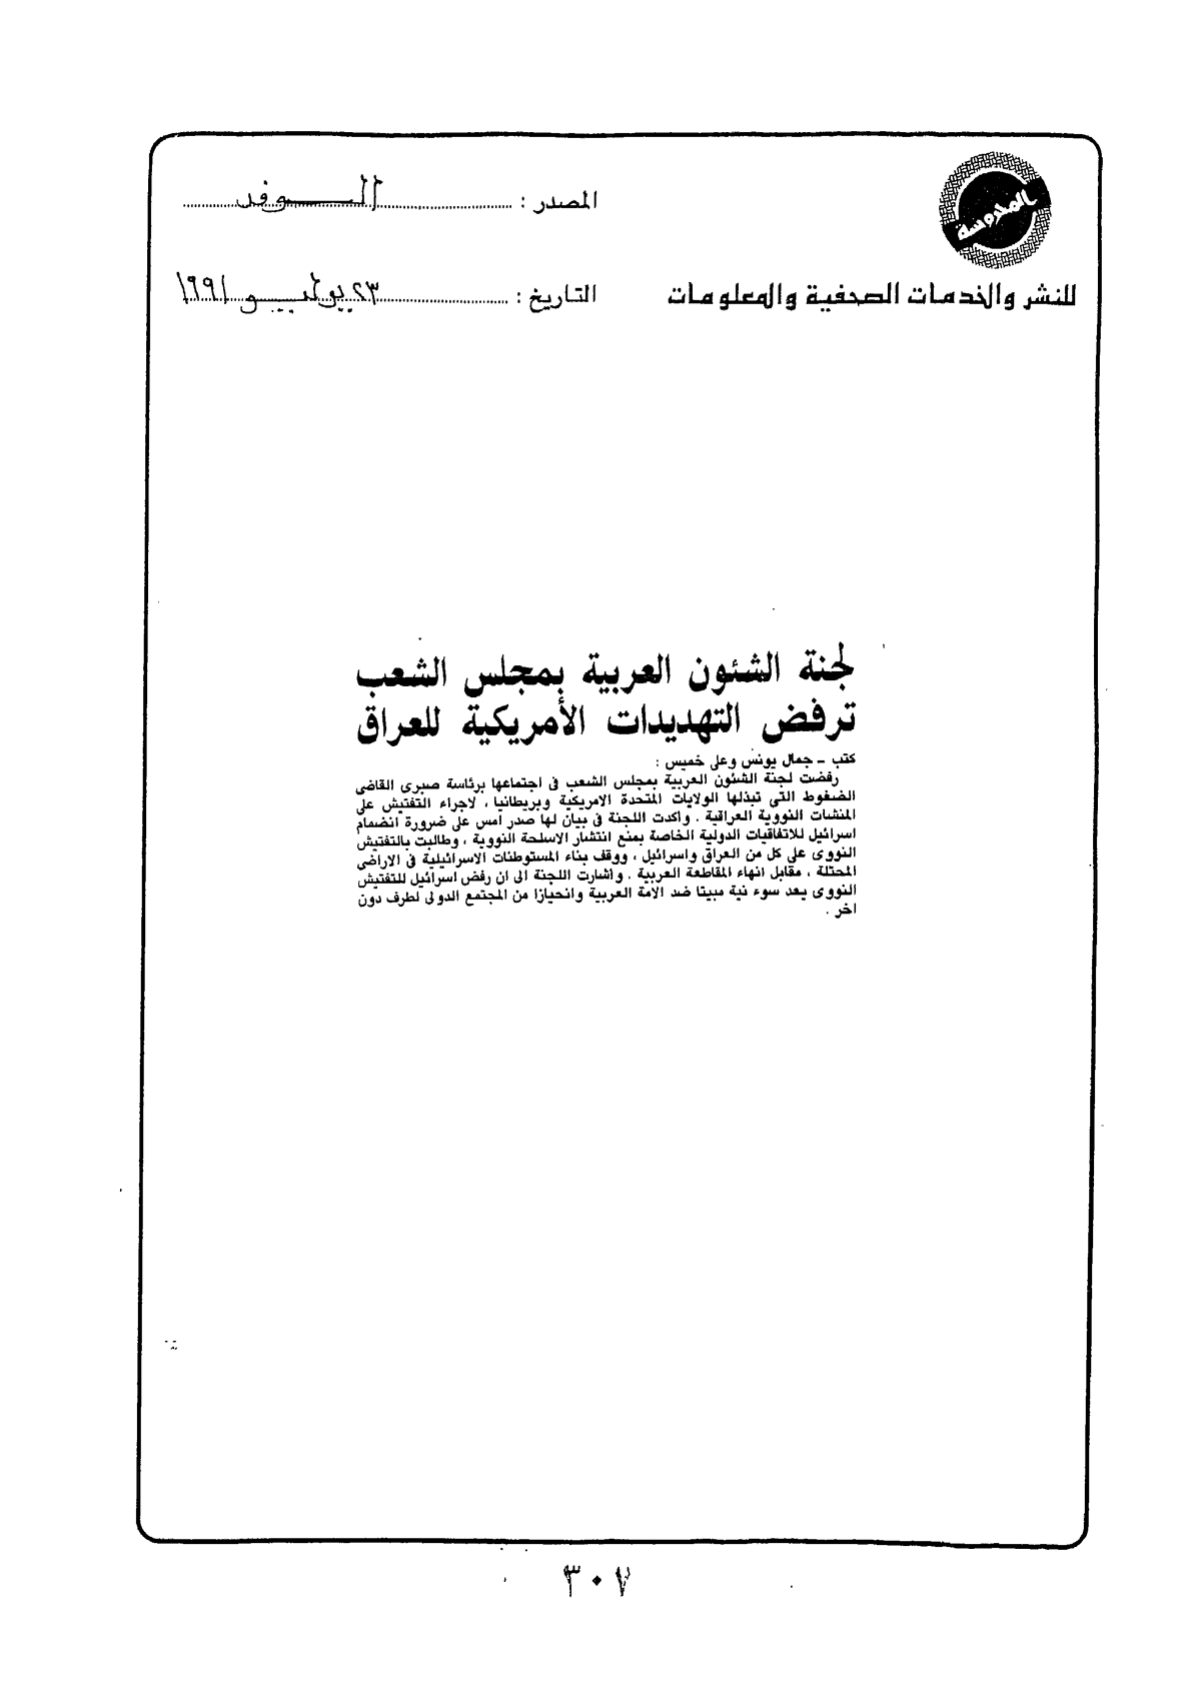 المحروسة
المصدر : الوفد
للنشر والخدمات الصحفية والمعلومات
التاريخ : ٢٣ يوليو ١٩٩١
لجنة الشئون العربية بمجلس الشعب
ترفض التهديدات الأمريكية للعراق
كتب – جمال يونس وعلى خميس :
رفضت لجنة الشئون العربية بمجلس الشعب فى اجتماعها برئاسة صبرى القاضى
الضغوط التى تبذلها الولايات المتحدة الامريكية وبريطانيا ، لاجراء التفتيش على
المنشات النووية العراقية . واكدت اللجنة فى بيان لها صدر امس على ضرورة انضمام
اسرائيل للاتفاقيات الدولية الخاصة بمنع انتشار الاسلحة النووية ، وطالبت بالتفتيش
النووى على كل من العراق واسرائيل ، ووقف بناء المستوطنات الاسرائيلية فى الاراضى
المحتلة ، مقابل انهاء المقاطعة العربية . واشارت اللجنة الى ان رفض اسرائيل للتفتيش
النووى يعد سوء نية مبيتا ضد الامة العربية وانحيازا من المجتمع الدولى لطرف دون
اخر .
٣٠٧